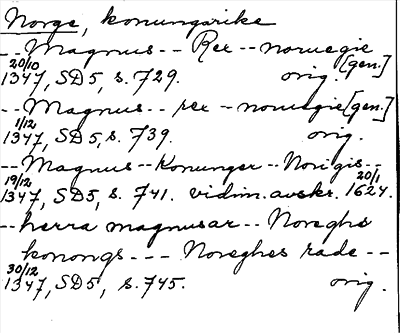 Norge, konungarike
--Magnus--Rex--noruegie [gen.]
20/10 1347, SD5, s. 729. orig.
--Magnus--rex-noruegie [gen.]
1/12 1347, SD5, s. 739. orig.
--Magnus--Konunger--Norigis--
19/12 1347, SD5, s. 741. vidim. avskr. 20/1 1624.
--herra magnusar--Noreghs
konongs---Noreghes rade--
30/12 1347, SD5, s. 745. orig.